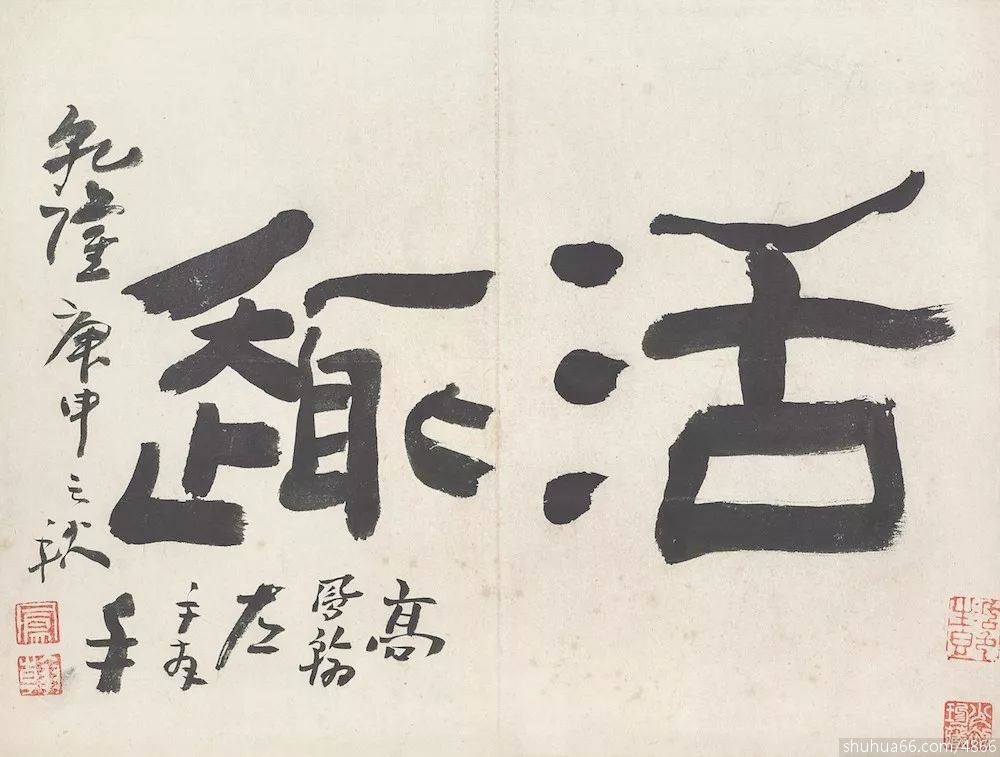 活趣
乾隆庚申之秋
高鳳翰左手
shuhua66.com/4866